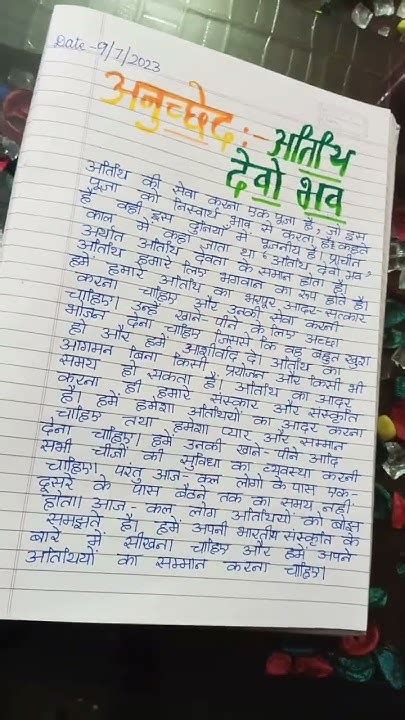 Date -9/7/2023
अनुच्छेद:- अतिथि
देवो भव
अतिथि की सेवा करना एक पूजा है, जो इस
पूजा को निस्वार्थ भाव से करता है कहते
हैं वही इस दुनियाँ में पूजनीय है। प्राचीन
काल में कहा जाता था 'अतिथि देवो भव,'
अर्थात अतिथि देवता के समान होता है।
अतिथि हमारे लिए भगवान का रूप होते है।
हमें हमारे अतिथि का भरपूर आदर-सत्कार
करना चाहिए और उनकी सेवा करनी
चाहिए। उन्हें खाने-पीने के लिए अच्छा
भोजन देना चाहिए जिससे कि वह बहुत खुश
हो और हमें आशीर्वाद दे। अतिथि का
आगमन बिना किसी प्रयोजन और किसी भी
समय हो सकता हैं। अतिथि का आदर
करना ही हमारे संस्कार और संस्कृति
है। हमें हमेशा अतिथियों का आदर करना
चाहिए तथा हमेशा प्यार और सम्मान
देना चाहिए। हमे उनकी खाने-पीने आदि
सभी चीजों की सुविधा का व्यवस्था करनी
चाहिए। परंतु आज-कल लोगो के पास एक-
दूसरे के पास बैठने तक का समय नहीं
होता। आज-कल लोग अतिथियों को बोझ
समझते हैं। हमें अपनी भारतीय संस्कृति के
बारे में सीखना चाहिए और हमें अपने
अतिथियों का सम्मान करना चाहिए।